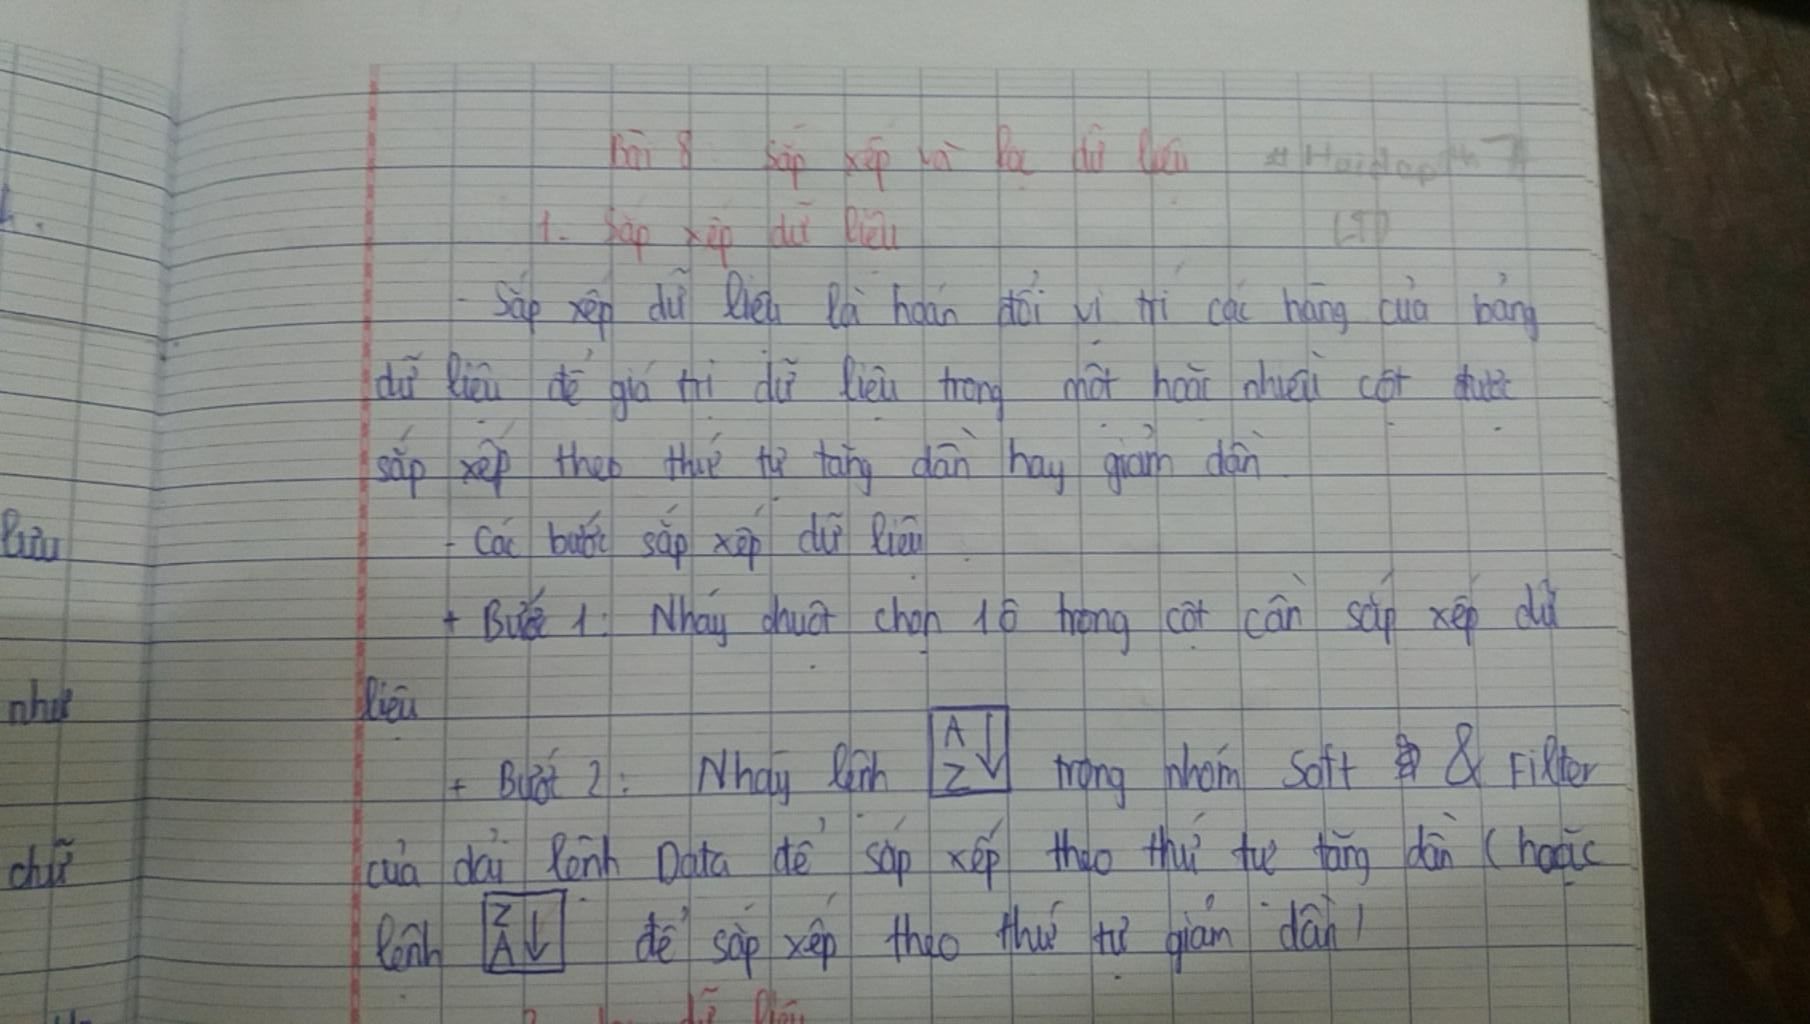 Bài 8 Sắp xếp và lọc dữ liệu
1. Sắp xếp dữ liệu
- Sắp xếp dữ liệu là hoán đổi vị trí các hàng của bảng
dữ liệu để giá trị dữ liệu trong một hoặc nhiều cột được
sắp xếp theo thứ tự tăng dần hay giảm dần
- Các bước sắp xếp dữ liệu
+ Bước 1: Nháy chuột chọn 1 ô trong cột cần sắp xếp dữ
liệu
+ Bước 2: Nháy lệnh A Z ↓ trong nhóm Soft & Filter
của dải lệnh Data để sắp xếp theo thứ tự tăng dần (hoặc
lệnh Z A ↓ để sắp xếp theo thứ tự giảm dần)
dữ liệu
lưu
như
chữ